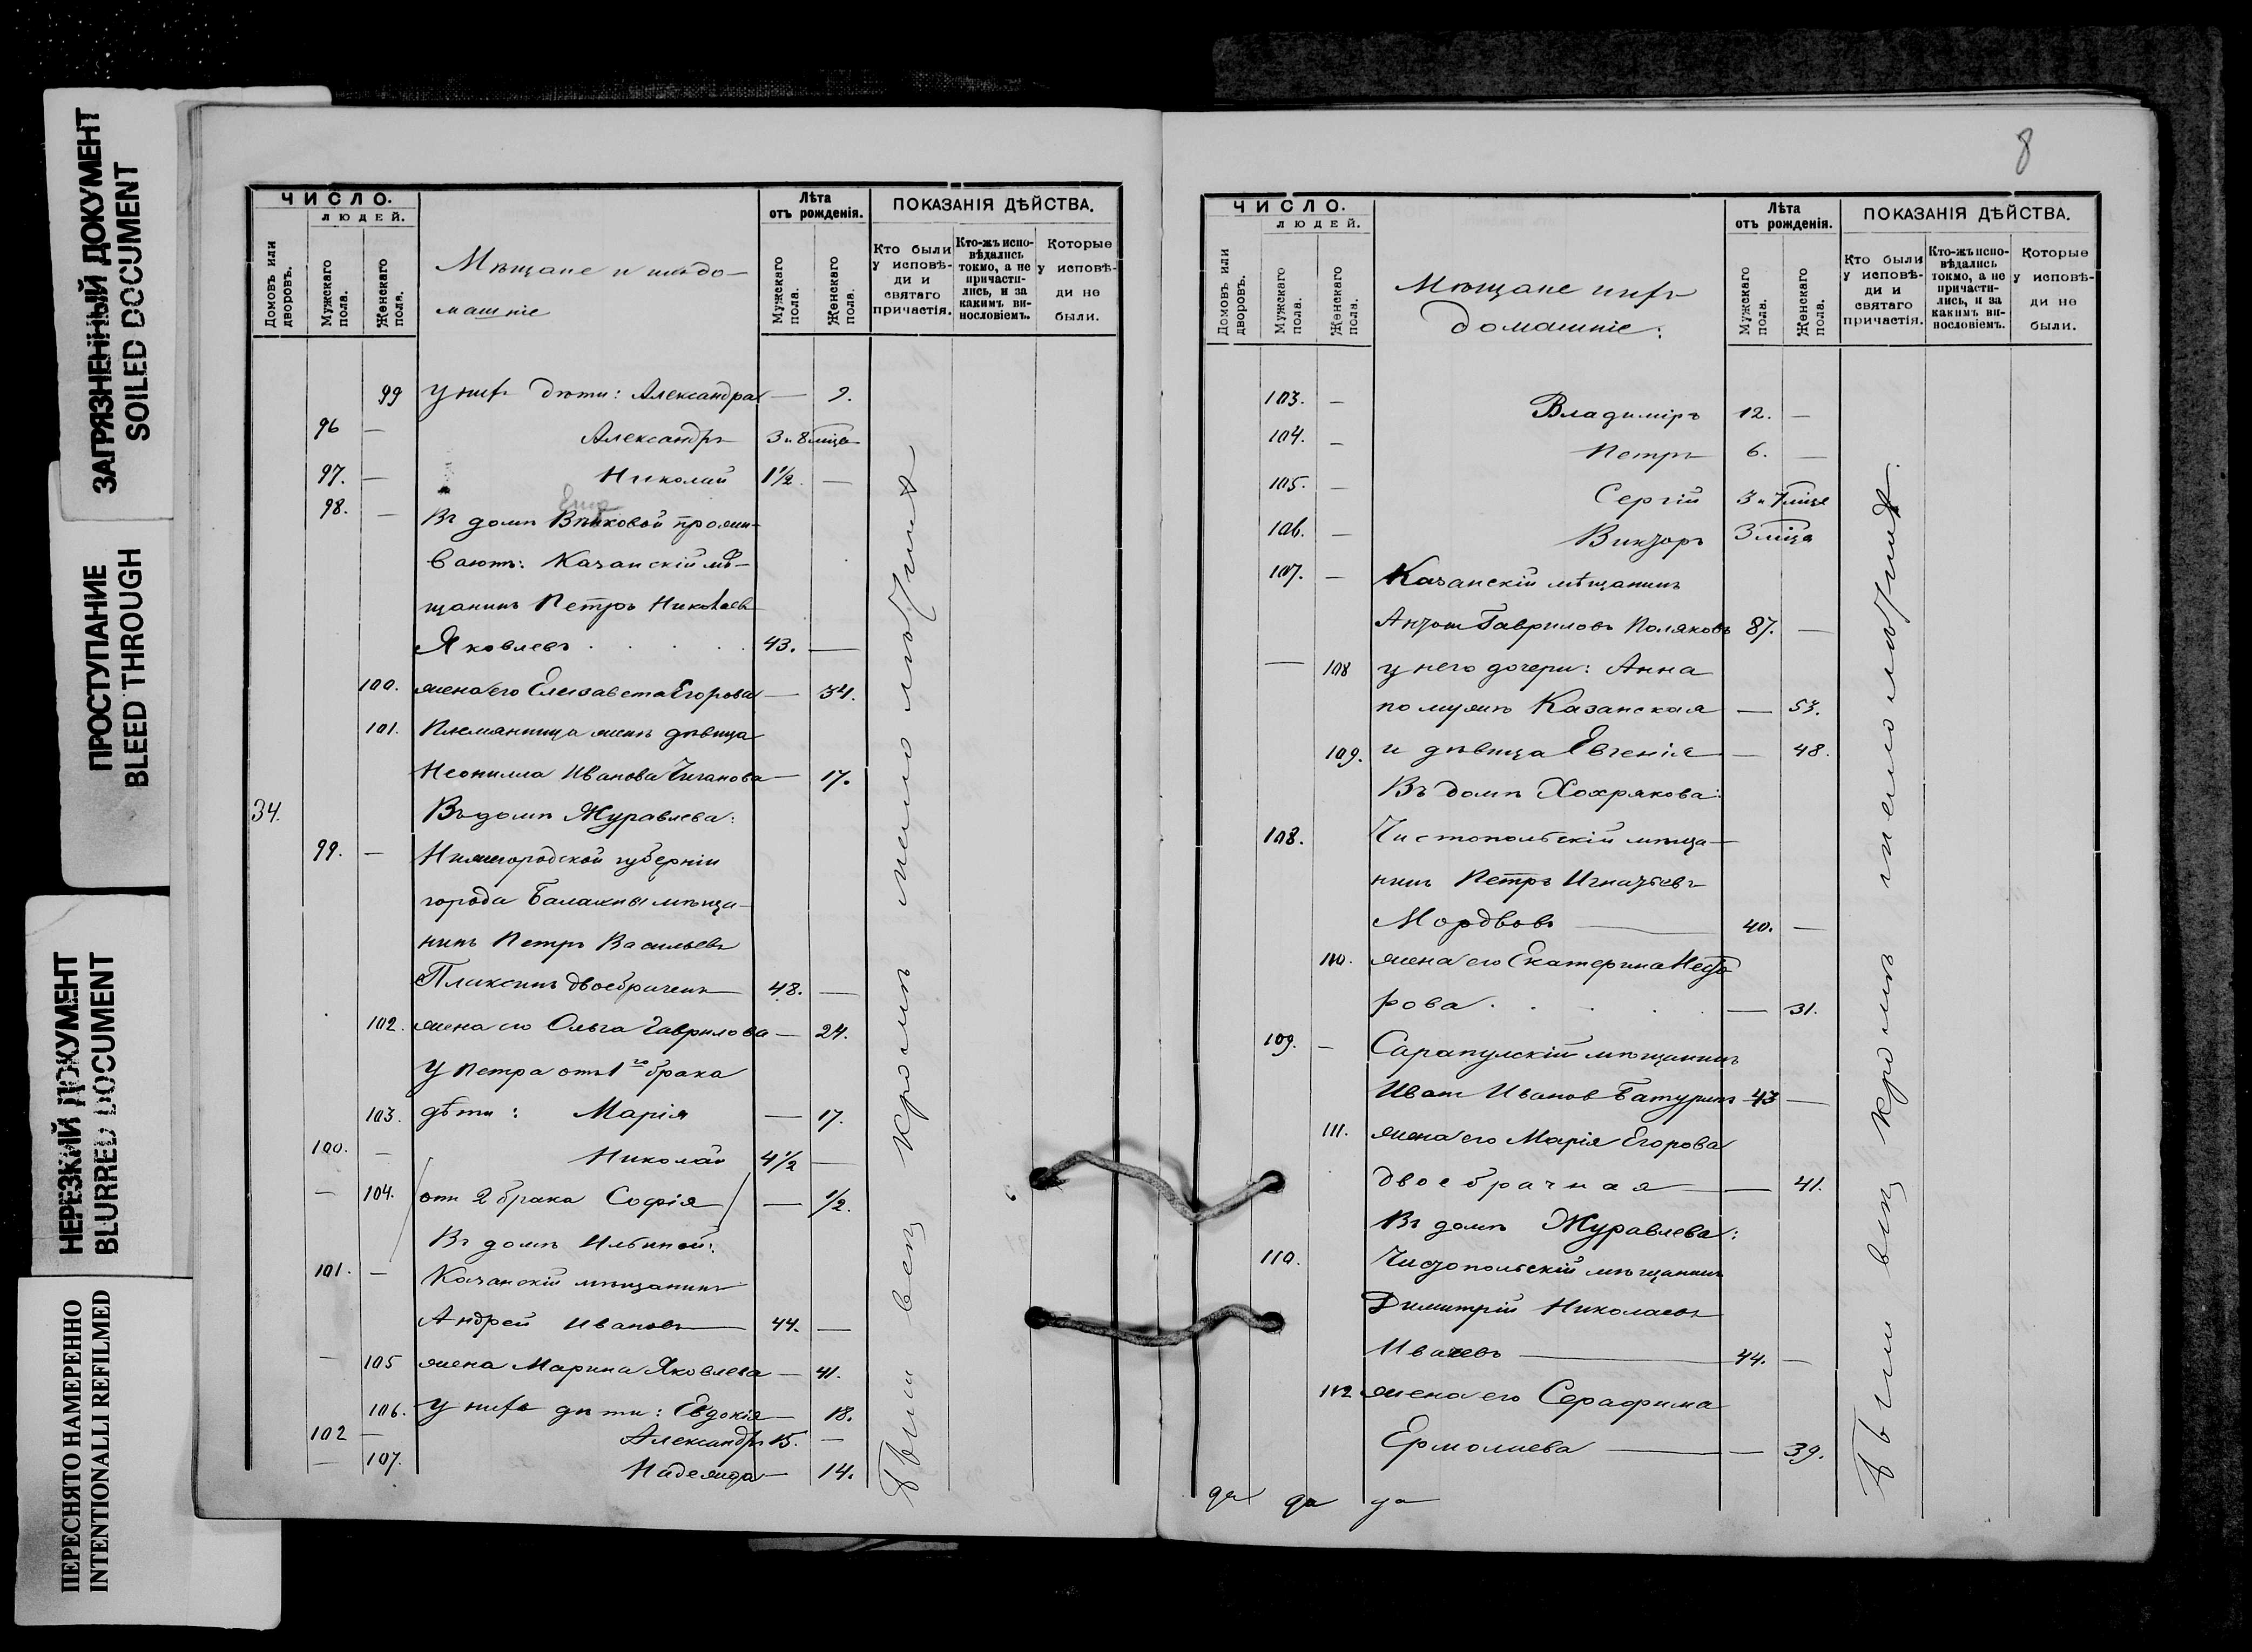 ЗАГРЯЗНЕННЫЙ ДОКУМЕНТ
SOILED DOCUMENT
ПРОСТУПАНИЕ
BLEED THROUGH
НЕРЕЗКИЙ ДОКУМЕНТ
BLURRED DOCUMENT
ПЕРЕСНЯТО НАМЕРЕННО
INTENTIONALLI REFILMED
ЧИСЛО.
ЛЮДЕЙ.
Домовъ или дворовъ.
Мужскаго пола.
Женскаго пола.
Мѣщане и ихъ до-
машніе
Лѣта
отъ рожденія.
Мужскаго пола.
Женскаго пола.
ПОКАЗАНІЯ ДѢЙСТВА.
Кто были у исповѣ-ди и святаго причастія.
Кто-жъ испо-вѣдались токмо, а не причасти-лись, и за какимъ ви-нословіемъ.
Которые у исповѣ-ди не были.
99 у нихъ дѣти: Александра — 9.
96 — Александръ 3 и 8 мѣца
97. — Николай 1 1/2 —
98. — Въ домѣ прожи-
ваютъ: Казанскій мѣ-
щанинъ Петръ Николаевъ
Яковлевъ 43. —
100. жена его Елисавета Егорова — 34.
101. Племянница жены дѣвица
Неонилла Иванова Чиганова — 17.
34. Въ домѣ Журавлева:
99. — Нижегородской губерніи
города Балахны мѣща-
нинъ Петръ Васильевъ
Плаксинъ двоебраченъ 48. —
102. жена его Ольга Гаврилова — 24.
У Петра отъ 1го брака
103. дѣти: Марія — 17.
100. — Николай 4 1/2 —
— 104. отъ 2 брака Софія — 1/2.
Въ домѣ Ильиной:
101. — Казанскій мѣщанинъ
Андрей Ивановъ 44. —
— 105 жена Марина Яковлева — 41.
106. У нихъ дѣти: Евдокія — 18.
102 — Александръ 15. —
— 107. Надежда — 14.
Были всѣ кромѣ
8
ЧИСЛО.
ЛЮДЕЙ.
Домовъ или дворовъ.
Мужскаго пола.
Женскаго пола.
Мѣщане и ихъ
домашніе:
Лѣта
отъ рожденія.
Мужскаго пола.
Женскаго пола.
ПОКАЗАНІЯ ДѢЙСТВА.
Кто были у исповѣ-ди и святаго причастія.
Кто-жъ испо-вѣдались токмо, а не причасти-лись, и за какимъ ви-нословіемъ.
Которые у исповѣ-ди не были.
103. — Владиміръ 12. —
104. — Петръ 6. —
105. — Сергій 3 и 7 мѣце
106. — Викторъ 3 мѣца
107. — Казанскій мѣщанинъ
Антонъ Гавриловъ Поляковъ 87. —
— 108 у него дочери: Анна
по мужѣ Казанская — 53.
109. и дѣвица Евгенія — 48.
Въ домѣ Хохрякова:
108. Чистопольскій мѣща-
нинъ Петръ Игнатьевъ
Мордвовъ 40. —
110. жена его Екатерина Несто
рова — 31.
109. — Сарапулскій мѣщанинъ
Иванъ Ивановъ Батуринъ 43 —
111. жена его Марія Егорова
двоебрачная — 41.
Въ домѣ Журавлева:
110. Чистопольскій мѣщанинъ
Димитрій Николаевъ
44. —
112 жена его Серафима
Ермолаева — 39.
Были всѣ кромѣ